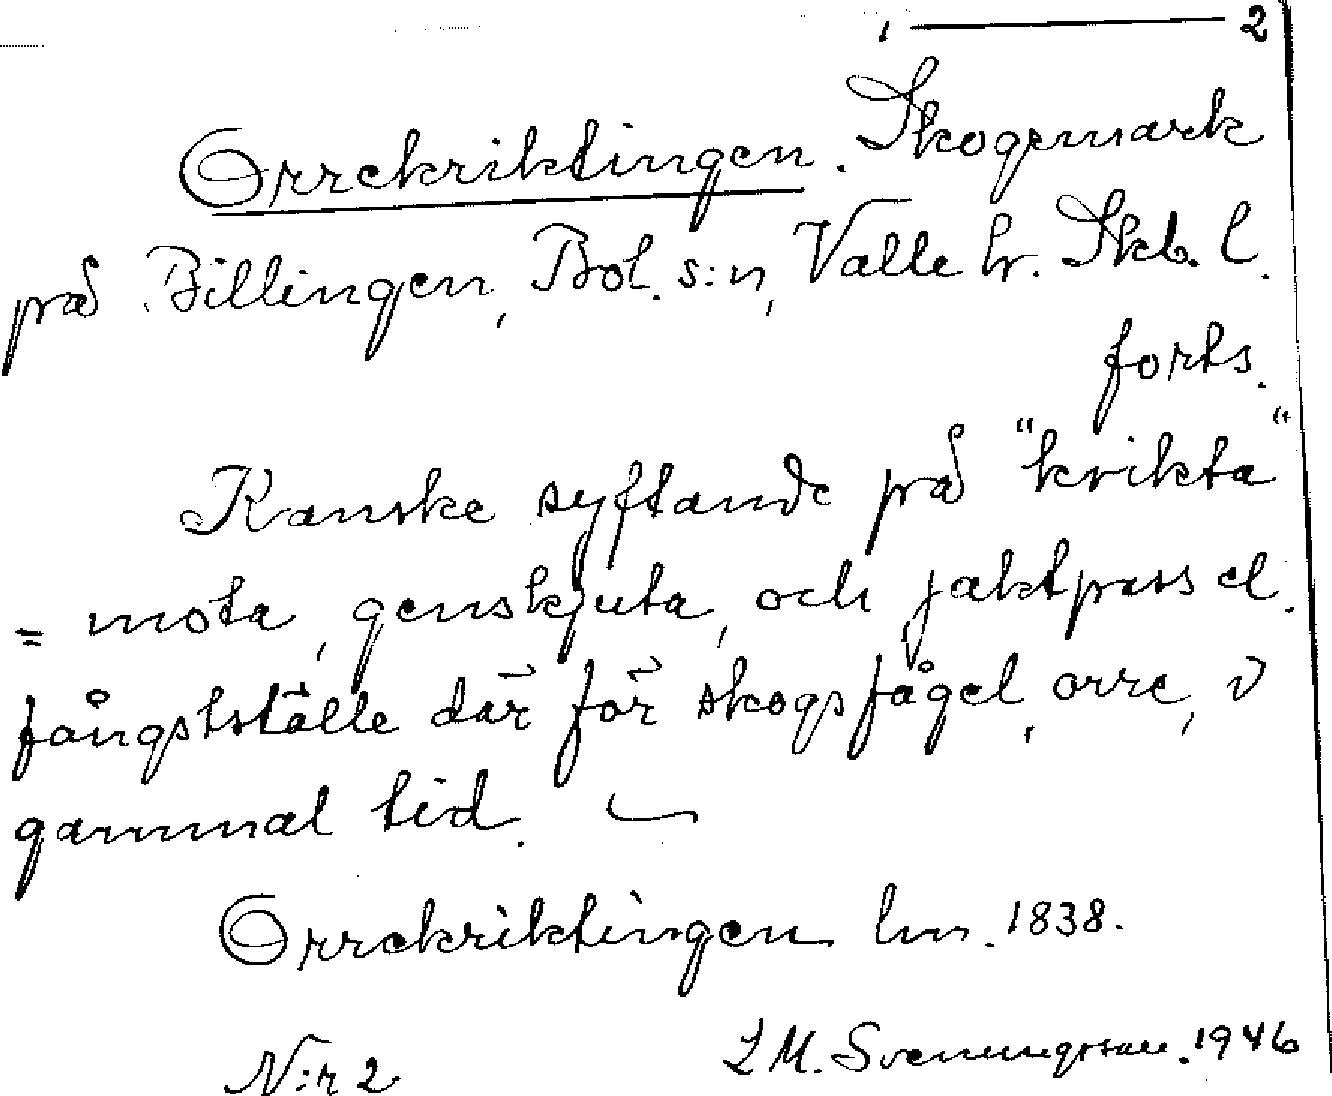 1 — 2
Orrekriktingen. Skogsmark
på Billingen, Bol. s:n, Valle hr. Skb. l.
forts.
Kanske syftande på "kvikta"
= mota, genskjuta, och jaktpass el.
fångstställe där för skogsfågel, orre, i
gammal tid. —
Orrekriktingen lm. 1838.
N:r 2 L M. Svenungsson. 1946